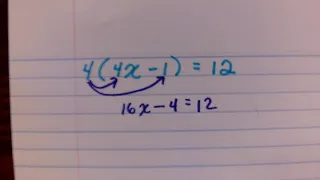 4(4x-1)=12
16x-4=12